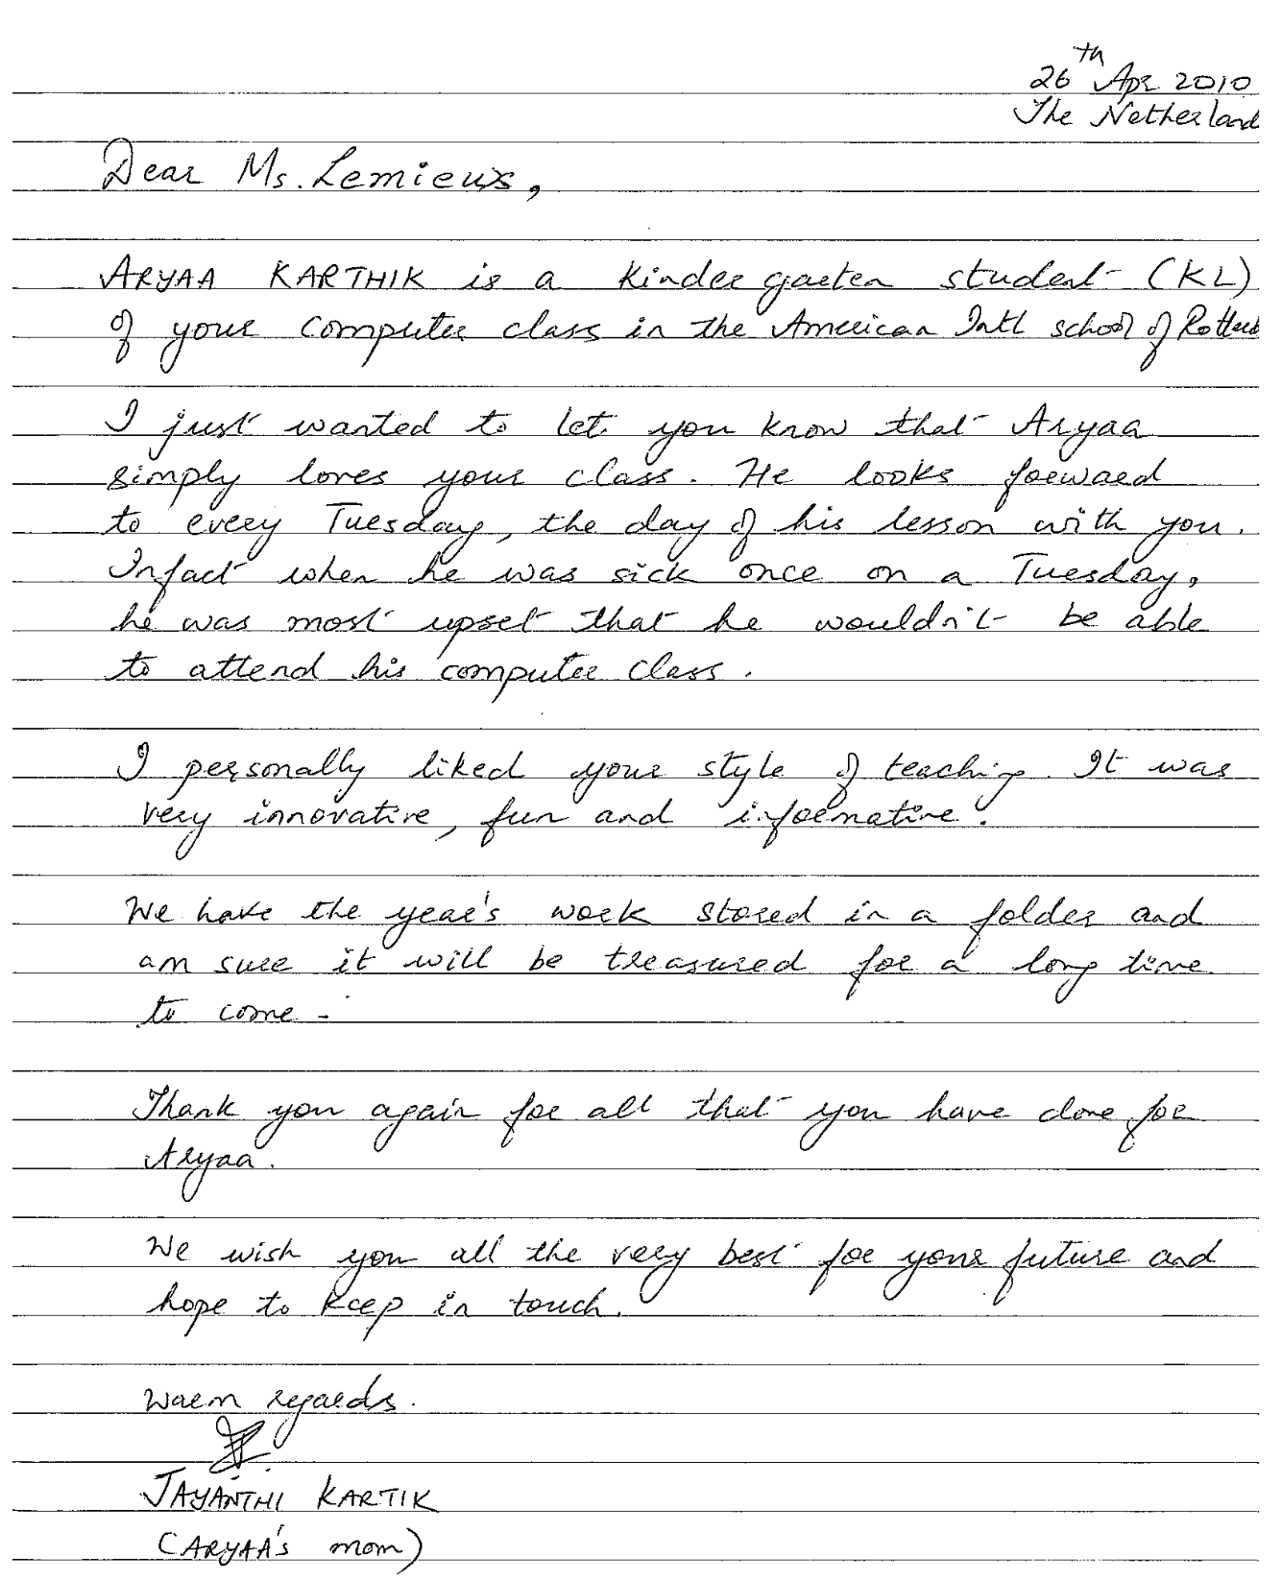 26th Apr 2010
The Netherland
Dear Ms. Lemieux,
ARYAA KARTHIK is a Kinder garten student (KL)
of your computer class in the American Intl school of Rotterd
I just wanted to let you know that Aryaa
simply loves your class. He looks forward
to every Tuesday, the day of his lesson with you.
Infact when he was sick once on a Tuesday,
he was most upset that he wouldn't be able
to attend his computer class.
I personally liked your style of teaching. It was
very innovative, fun and informative.
We have the year's work stored in a folder and
am sure it will be treasured for a long time
to come.
Thank you again for all that you have done for
Aryaa.
We wish you all the very best for your future and
hope to keep in touch.
Warm regards.
JAYANTHI KARTIK
(ARYAA's mom)